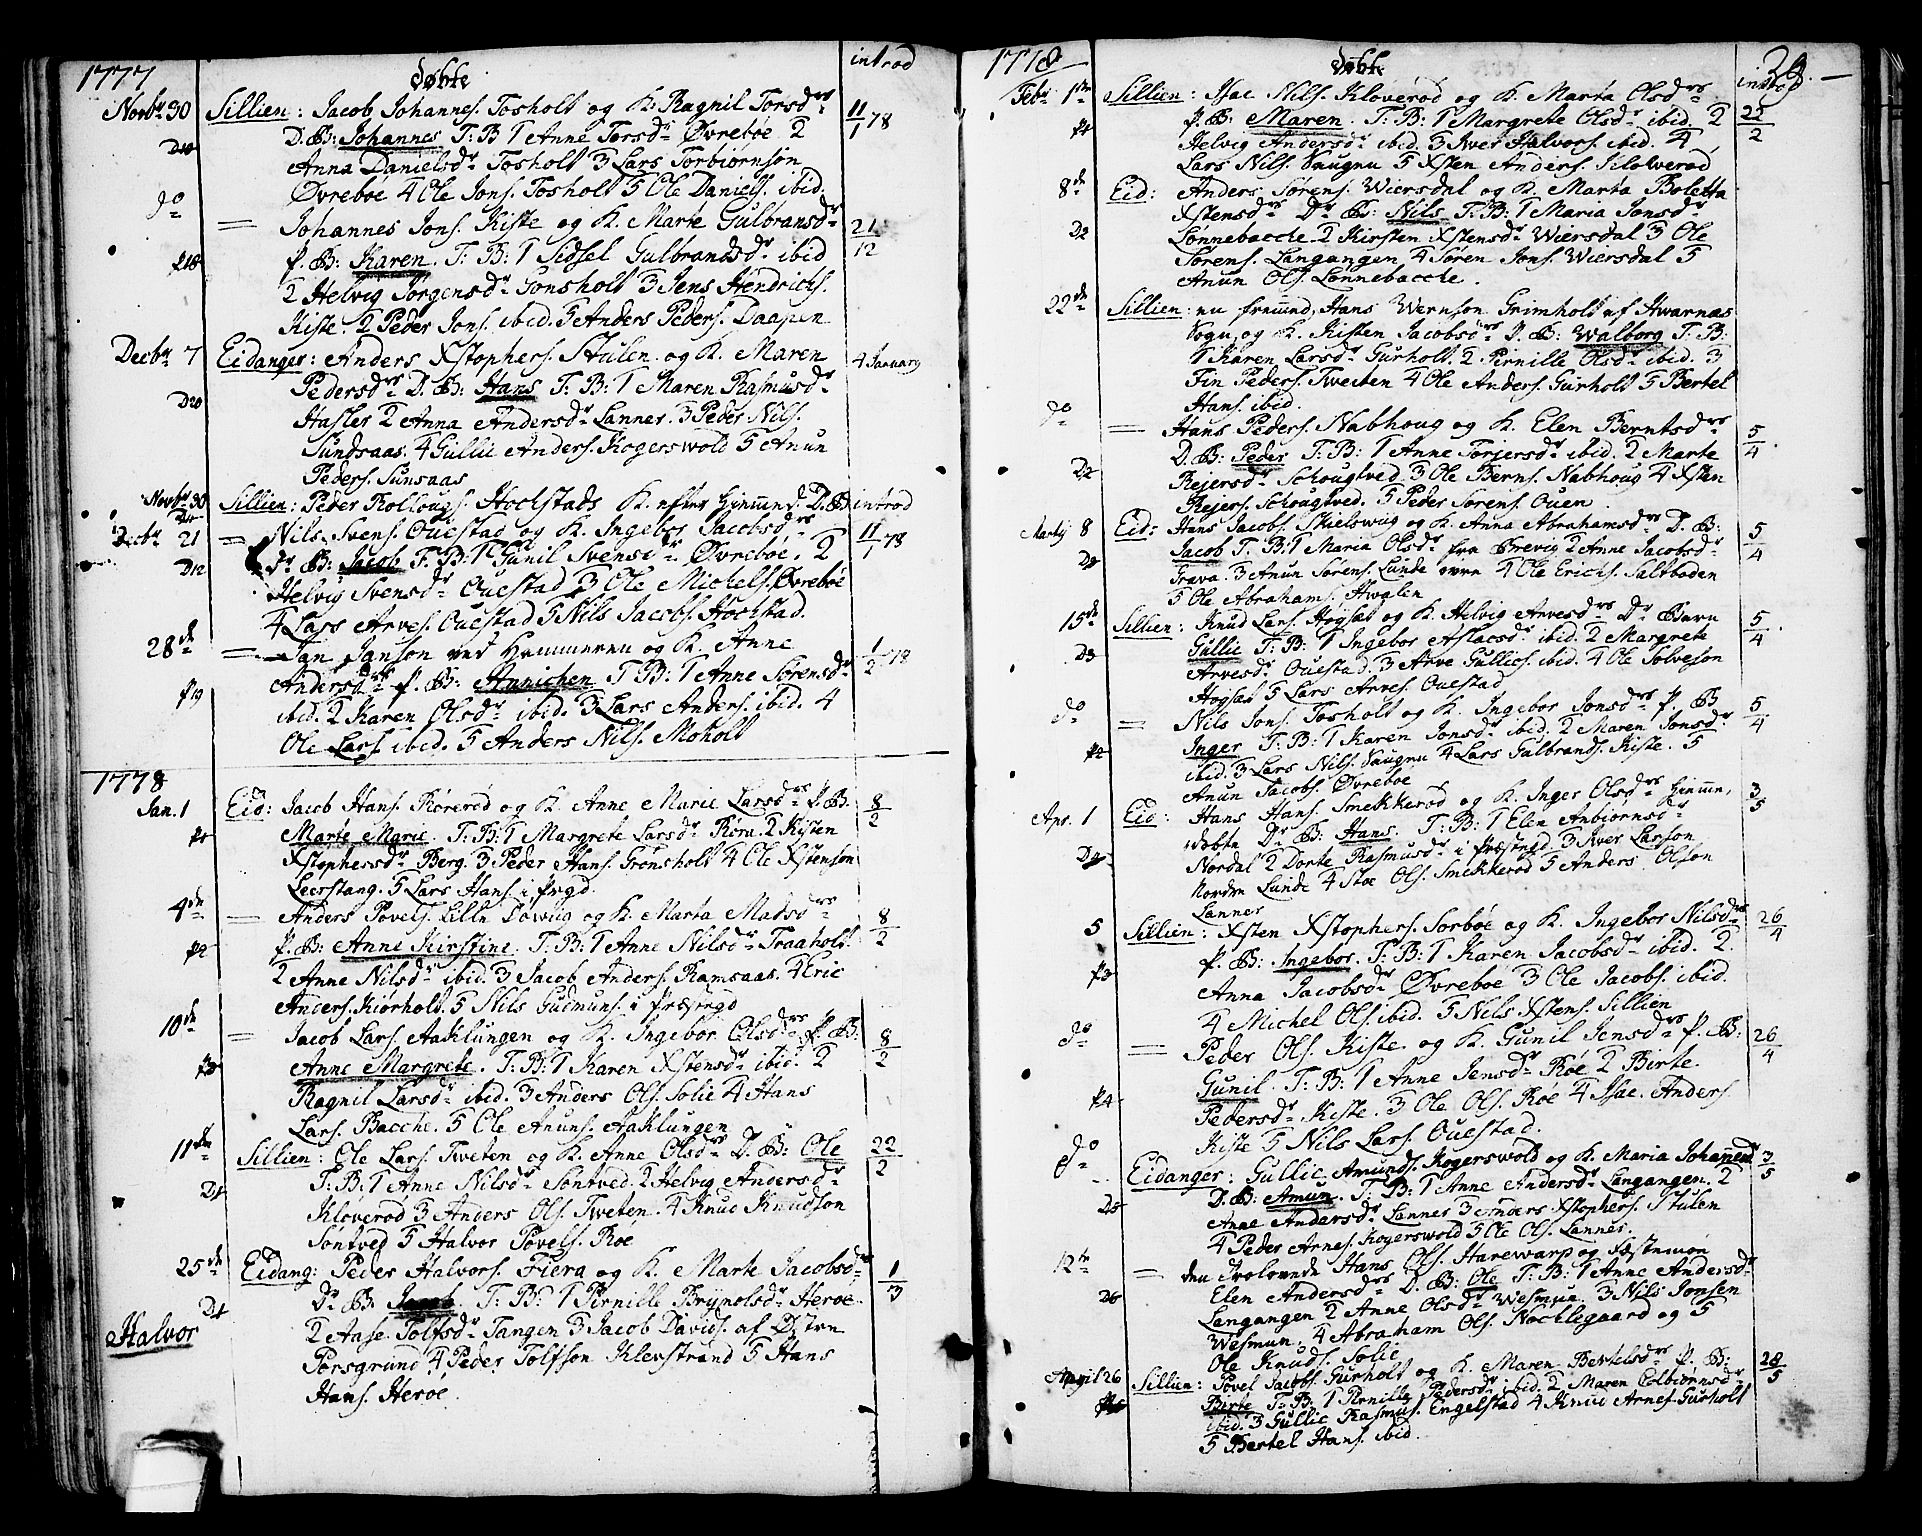 1777
Døbte
introd
Novbr 30 Sillien: Jacob Johannes. Tosholt og K. Ragnil Torsdr 11/1 78
D10 D. B: Johannes T: B 1 Anne Torsdr Øvreböe 2
Anna Danielsdr Tosholt 3 Lars Torbiørnsön
Øvreboe 4 Ole Jons. Tosholt 5 Ole Daniels. ibid.
do = Johannes Jons. Kiste og K. Marte Gulbransdr 21/12
P18 P. B: Karen. T: B: 1 Sidsel Gulbrandsdr ibid
2 Helvig Jörgensdr Gonsholt 3 Jens Hendrichs.
Kiste. 2 Peder Jons. ibid. 5 Anders Peders. Daapen
Decbr 7 Eidanger: Anders Xstophers. Stulen og K. Maren 4 January
Pedersdr D. B: Hans T: B: 1 Maren Rasmusdr
D20 Hasler 2 Anna Andersdr Lanner. 3 Peder Nils.
Sundsaas. 4 Gullic Anders. Kogerswold 5 Anun
Peders. Sunsaas
Novbr 30 Sillien: Peder Rollougs. Hochstads K. efter Hiemmed. D. B. introd
Decbr 21 = Nils Svens. Ouestad og K. Ingebor Jacobsdr 11/1 78
D12 Dr B: Jacob T: B: 1 Gunil Svensdr Øvreböe. 2
Helvig Svensdr Ouestad 3 Ole Michels. Øvreböe
4 Lars Arves. Ouestad 5 Nils Jacobs. Hochstad.
28de = Jan Janson ved Hammeren og K. Anne 1/2 78
Andersdr P. B: Annichen T: B: 1 Anne Sørensdr
P19 ibid. 2 Karen Olsdr ibid. 3 Lars Anders. ibid. 4
Ole Lars. ibid. 5 Anders Nils. Moholt
1778
Jan. 1 Eid: Jacob Hans. Rörerød og K. Anne Marie Larsdr P. B. 8/2
P1 Marte Marie. T: B: 1 Margrete Larsdr Röra. 2 Kisten
Xstophersdr Berg. 3 Peder Hans. Grønsholt 4 Ole Xstensøn
Leerstang. 5 Lars Hans. i Prgd.
4de = Anders Povels. Lille Löwug og K. Marta Madsdr 8/2
P2 P. B: Anne Kirstine. T: B: 1 Anne Nilsdr Traaholt.
2 Anne Nilsdr ibid. 3 Jacob Anders. Ramsaas. 4 Eric
Anders. Kiørholt. 5 Nils Gudmuns. i Præstgd
10de = Jacob Lars. Aaklungen og K. Ingebor Olsdr P. B: 8/2
P3 Anne Margrete. T: B: 1 Karen Xstensdr ibid. 2
Ragnil Larsdr ibid. 3 Anders Ols. Solie 4 Hans
Lars. Bacche. 5 Ole Anuns. Aaklungen
11de Sillien: Ole Lars. Tweten og K. Anne Olsdr D. B: Ole 22/2
D1 T: B: 1 Anne Nilsdr Sontved. 2 Helvig Andersdr
Kloverød 3 Anders Ols. Tweten. 4 Knud Knudsön
Sontved 5 Halvor Povels. Röe
25de Eidang: Peder Halvors. Fiera og K. Marte Jacobsdr 1/3
D1 Dr B: Jacob. T: B: 1 Pirnille Brynolsdr Heröe
Halvor 2 Aase Tolfsdr Tangen 3 Jacob Davids. af Østre
Porsgrund 4 Peder Tolfsön Klevstrand 5 Hans
Hans. Heröe.
1778
Døbte
29.
introd
Febr 1ste Sillien: Isac Nils. Kloverød og K. Marta Olsdr 22/2
P1 P. B: Maren. T: B: 1 Margrete Olsdr ibid. 2
Helvig Andersdr ibid. 3 Iver Halvors. ibid. 4
Lars Nils. Saugnu 5 Xsten Anders. Kloverød
8de Eid: Anders Sørens. Wiersdal og K. Marta Boletta
D2 Xstensdr Dr B: Nils T: B: 1 Maria Jonsdr
Lønnebacche. 2 Kirsten Xstensdr Wiersdal 3 Ole
Sørens. Langangen 4 Søren Jons. Wiersdal 5
Anun Ols. Lønnebacche.
22de Sillien: nu fremmd, Hans Wernson Grimholt af Hwarnæs
Sogn og K. Kisten Jacobsdr P. B: Walborg T: B:
1 Karen Larsdr Gurholt. 2 Pirnille Olsdr ibid. 3
Fin Peders. Tweiten 4 Ole Anders. Gurholt 5 Bertel
Hans. ibid.
do = Hans Peders. Nabhoug og K. Elen Berntsdr 5/4
D2 D. B: Peder T: B: 1 Anne Torjersdr ibid. 2 Marte
Rejersdr Schougtved 3 Ole Berns. Nabhoug 4 Xsten
Rejers. Schougtved. 5 Peder Sørens. Ouen
Martij 8 Eid: Hans Jacobs. Skielswiig og K. Anna Abrahamsdr D. B: 5/4
D3 Jacob T. B: 1 Maria Olsdr fra Brevig 2 Anne Jacobsdr
Grava. 3 Anun Sørens. Lunde 4 Ole Erichs. Saltboden
5 Ole Abrahams. Hwalen
15de Sillien: Knud Lars. Høgset og K. Helvig Arvesdr Dr Barn 5/4
D3 Gullic T: B: 1 Ingebor Aslacsdr ibid. 2 Margrete
Arvesdr Ouestad. 3 Arve Gullics. ibid. 4 Ole Solveson
Høgset 5 Lars Arves. Ouestad
do = Nils Jons. Tosholt og K. Ingebor Jonsdr P. B 5/4
P2 Inger T: B: 1 Karen Jonsdr ibid. 2 Maren Jonsdr
ibid. 3 Lars Nils. Saugnu 4 Lars Gulbrands. Kiste. 5
Anun Jacobs. Øvreboe
Apr. 1 Eid: Hans Hans. Smekkerød og K. Inger Olsdr Hiemm, 3/5
døbte Dr B: Hans. T: B: 1 Elen Anbiørnsdr
D4 Nordal 2 Dorte Rasmusdr i Præstegd 3 Iver Larson
Nordre Lunde 4 Stoe Ols. Smekkerød 5 Anders Olsön
Lanner
5 Sillien: Xsten Xstophers. Sorböe og K. Ingebor Nilsdr 26/4
P3 P. B: Ingebor. T: B: 1 Karen Jacobsdr ibid. 2
Anna Jacobsdr Øvreböe 3 Ole Jacobs. ibid.
4 Michel Ols. ibid. 5 Nils Xstens. Sillien
do = Peder Ols. Kiste og K. Gunil Jensdr P. B: 26/4
P4 Gunil. T: B: 1 Anne Jensdr Röe 2 Birte
Pedersdr Kiste. 3 Ole Ols. Röe 4 Isac Anders.
Kiste 5 Nils Lars. Ouestad.
do Eidanger: Gullic Amunds. Kogerswold og K. Maria Johannesd 3/5
D5 D. B: Amun. T: B: 1 Anne Andersdr Langangen. 2
Anne Andersdr Lanner 3 Anders Xstophers. Stulen
4 Peder Arnes. Kogerswold 5 Ole Ols. Lanner.
12te = den Trolovede Hans Ols. Harewarp og Fæstemön
D6 Elen Andersdr D. B: Ole T: B: 1 Anne Andersdr
Langangen 2 Anne Olsdr Wesmun. 3 Nils Jonsen
Wesmun. 4 Abraham Ols. Nøchlegaard og 5
Ole Knuds. Solie
April 26 Sillien: Povel Jacobs. Gurholt og K. Maren Bertelsdr P. B: 28/5
P5 Birte T: B: 1 Pirnille Pedersdr ibid. 2 Maren Colbiørnsdr
ibid. 3 Gullic Rasmus. Engelstad 4 Knud Arnes. Gurholt
5 Bertel Hans. ibid.